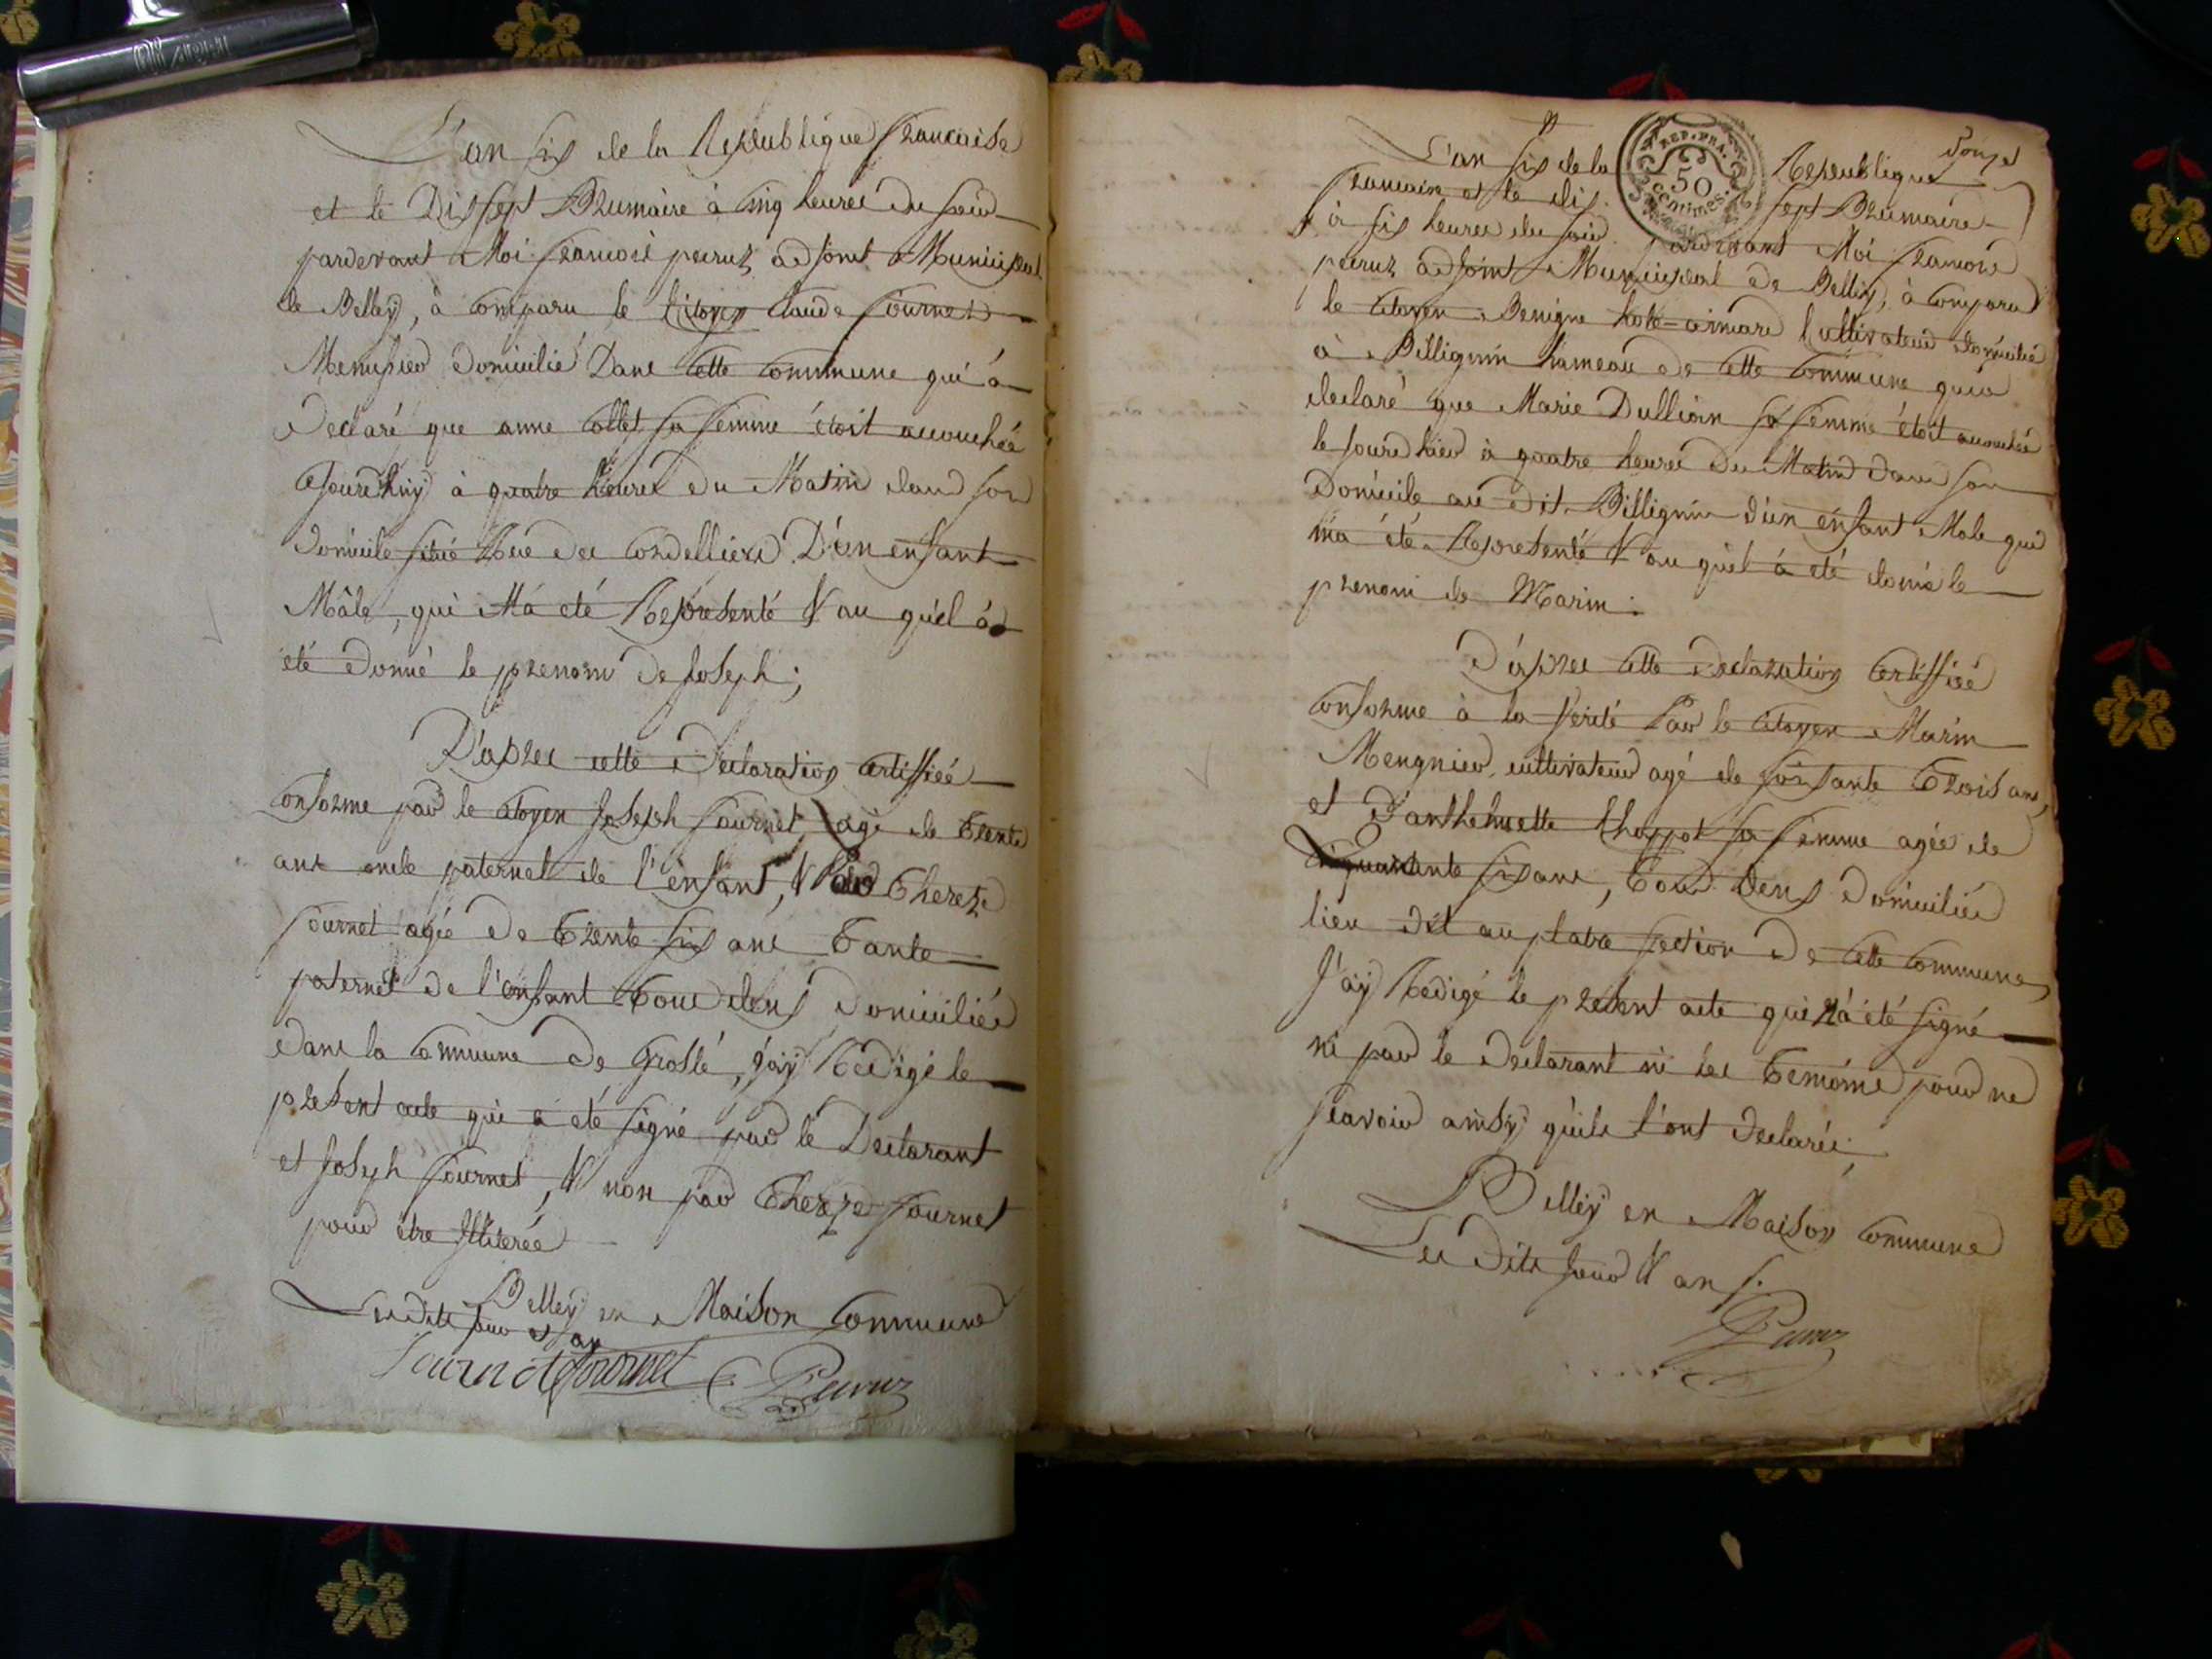 L'an six de la Republique francaise
et le Dixsept Brumaire à Cinq heures du soir
pardevant Moi francois peiruz adjoint Municipal
de Belley, à Comparu le Citoyen Claude fournet
Menusier Domicilié Dans Cette Commune qui à
Declaré que anne Collet sa femme étoit accouchée
à quatre heures du Matin dans son
domicile situé Rue des Cordelliers D'un enfant
Mâle, qui M'á eté Representé & au quel à
été Donné le prenom de Joseph;
D'apres cette Declaration Certiffiée
Conforme par le Citoyen Joseph fournet agé de Trente
ans oncle paternel de l'enfant, & Par Thereze
fournet agée De Trente six ans Tante
paternel de l'enfant Tous deux Domiciliés
dans la Commune De Groslé, J'ay Redigé le
présent acte qui a eté signé par le Declarant
et Joseph fournet, & non par Thereze fournet
pour être Illiterée
Belley en Maison Commune
Les dits jour et an
fournet fournet Peiruz
Douze
REP. FRA.
50
Centimes
L'an six de la Republique
francaise et le dix sept Brumaire
à six heures du soir pardevant Moi francois
peiruz adjoint Municipal de Belley, à Comparu
le Citoyen Benigne Cultivateur domicilié
à Billignin hameau de Cette Commune qui à
declaré que Marie Dullion sa femme étoit accouchée
le à quatre heures Du Matin dans son
Domicile au dit Billignin d'un enfant Male qui
m'a été Representé & au quel à eté donné le
prenom de Marin.
D'apres cette Declaration Certiffiée
Conforme à la Verité Par le Citoyen Marin
cultivateur agé de soixsante Trois ans,
et sa femme agée de
Cinquante six ans, Tous Deux Domiciliés
lieu dit au platre section De Cette Commune
J'ay Redigé le present acte qui n'à été signé
ni par le Declarant ni les Temoins pour ne
scavoir ainsy qu'ils l'ont declaré;
Belley en Maison Commune
Les Dits jour & an
Peiruz